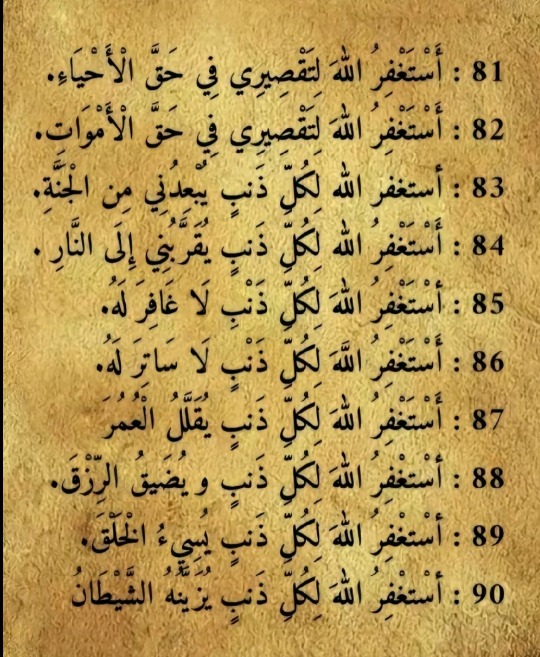 81 : أَسْتَغْفِرُ اللهَ لِتَقْصِيرِي فِي حَقَّ الْأَحْيَاءِ.
82 : أَسْتَغْفِرُ اللهَ لِتَقْصِيرِي فِي حَقَّ الْأَمْوَاتِ.
83 : أستغفر الله لِكُلِّ ذَنبٍ يُبْعِدُنِي مِن الْجَنَّةِ.
84 : أَسْتَغْفِرُ الله لِكُلِّ ذَنبٍ يُقَرَّبُنِي إِلَى النَّارِ .
85 : أسْتَغْفِرُ اللهَ لِكُلِّ ذَنْبٍ لَا غَافِرَ لَهُ.
86 : أَسْتَغْفِرُ اللَّهَ لِكُلِّ ذَنْبٍ لَا سَاتِرَ لَهُ.
87 : أَسْتَغْفِرُ اللهَ لِكُلِّ ذَنبٍ يُقَلَّلُ الْعُمُرَ
88 : أسْتغْفِرُ اللهَ لِكُلِّ ذَنبٍ و يُضَيقُ الرِّزْقَ.
89 : أسْتغْفِرُ اللهَ لِكُلِّ ذَنبٍ يُسِيءُ الْخَلْقَ.
90 : أسْتغْفِرُ اللهَ لِكُلِّ ذَنبٍ يُزَيِّنُهُ الشَّيْطَانُ